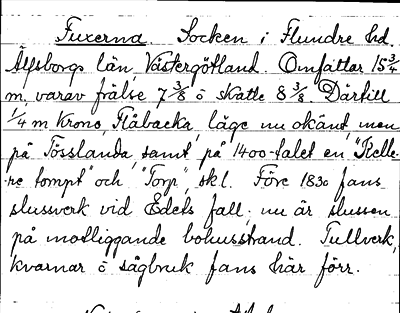 Fuxerna. Socken i Flundre hd.
Älfsborgs län, Västergötland. Omfattar 15 3/4
m, varav frälse 7 3/8 o skatte 8 3/8. Därtill
1/4 m Krono, Flåbacka, läge nu okänt, men
på Tösslanda, samt på 1400-talet en "Kelle-
re tompt" och "Torp", skl. Före 1830 fans
slussverk vid Edets fall; nu är slussen
på motliggande bohusstrand. Tullverk,
kvarnar o sågbruk fans här förr.